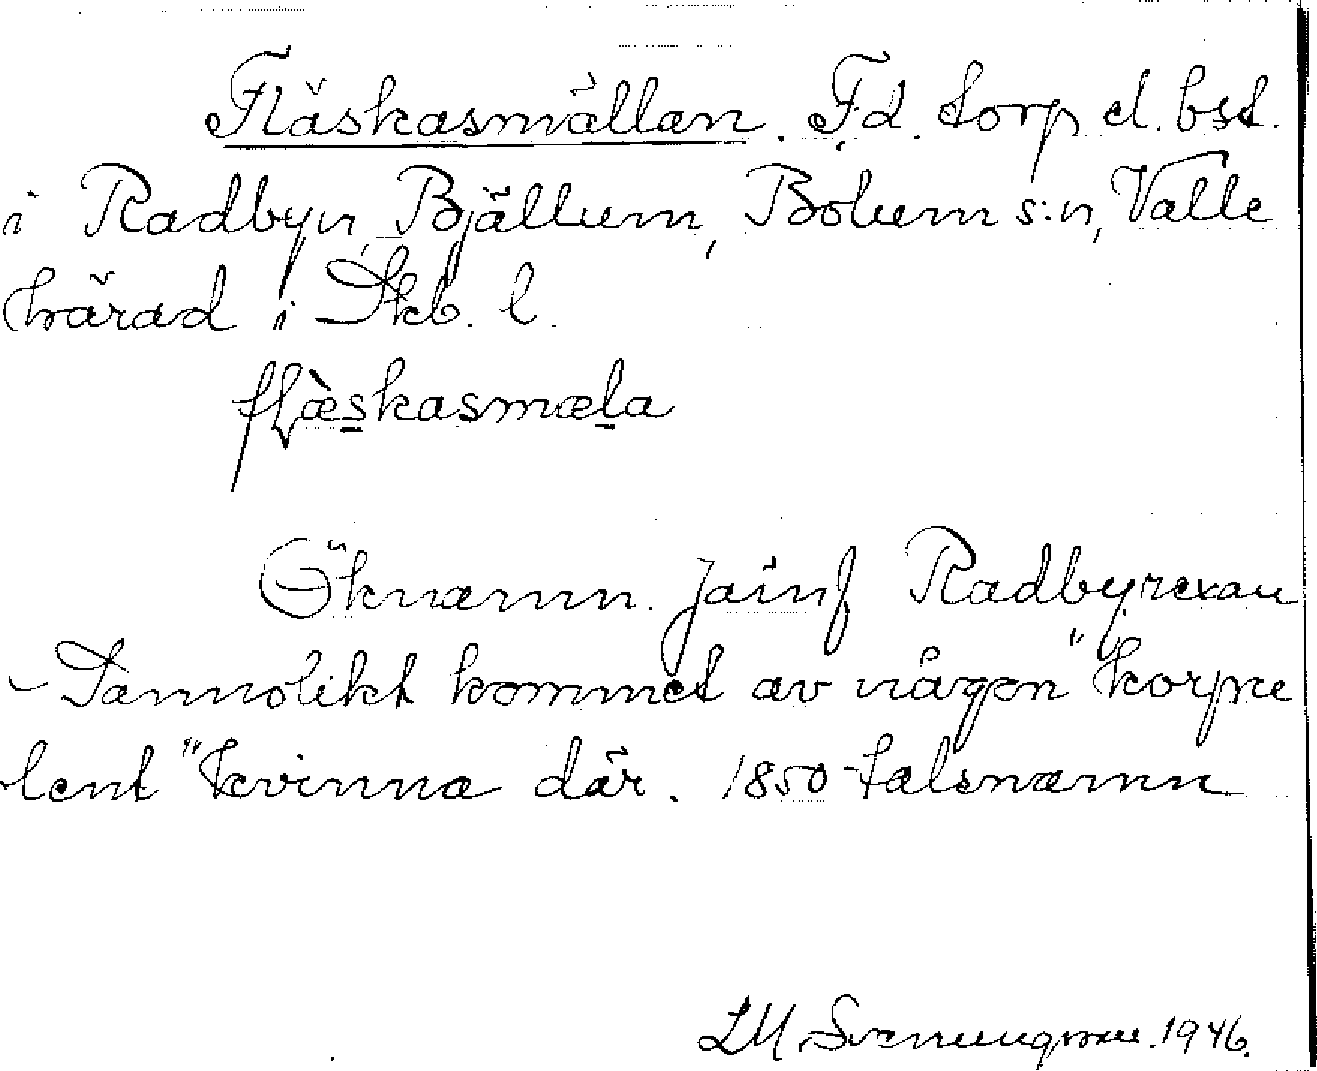 Fläskasmällan. Fd. torp el. bst.
i Radbyn, Bjällum, Bolum s:n, Valle
härad i Skb. l.
flæ̀skasmæla
Öknamn. jainf Radbyrexan
- Sannolikt kommet av någon "korpu
lent" kvinna där. 1850-talsnamn
LM Svenungsson. 1946.